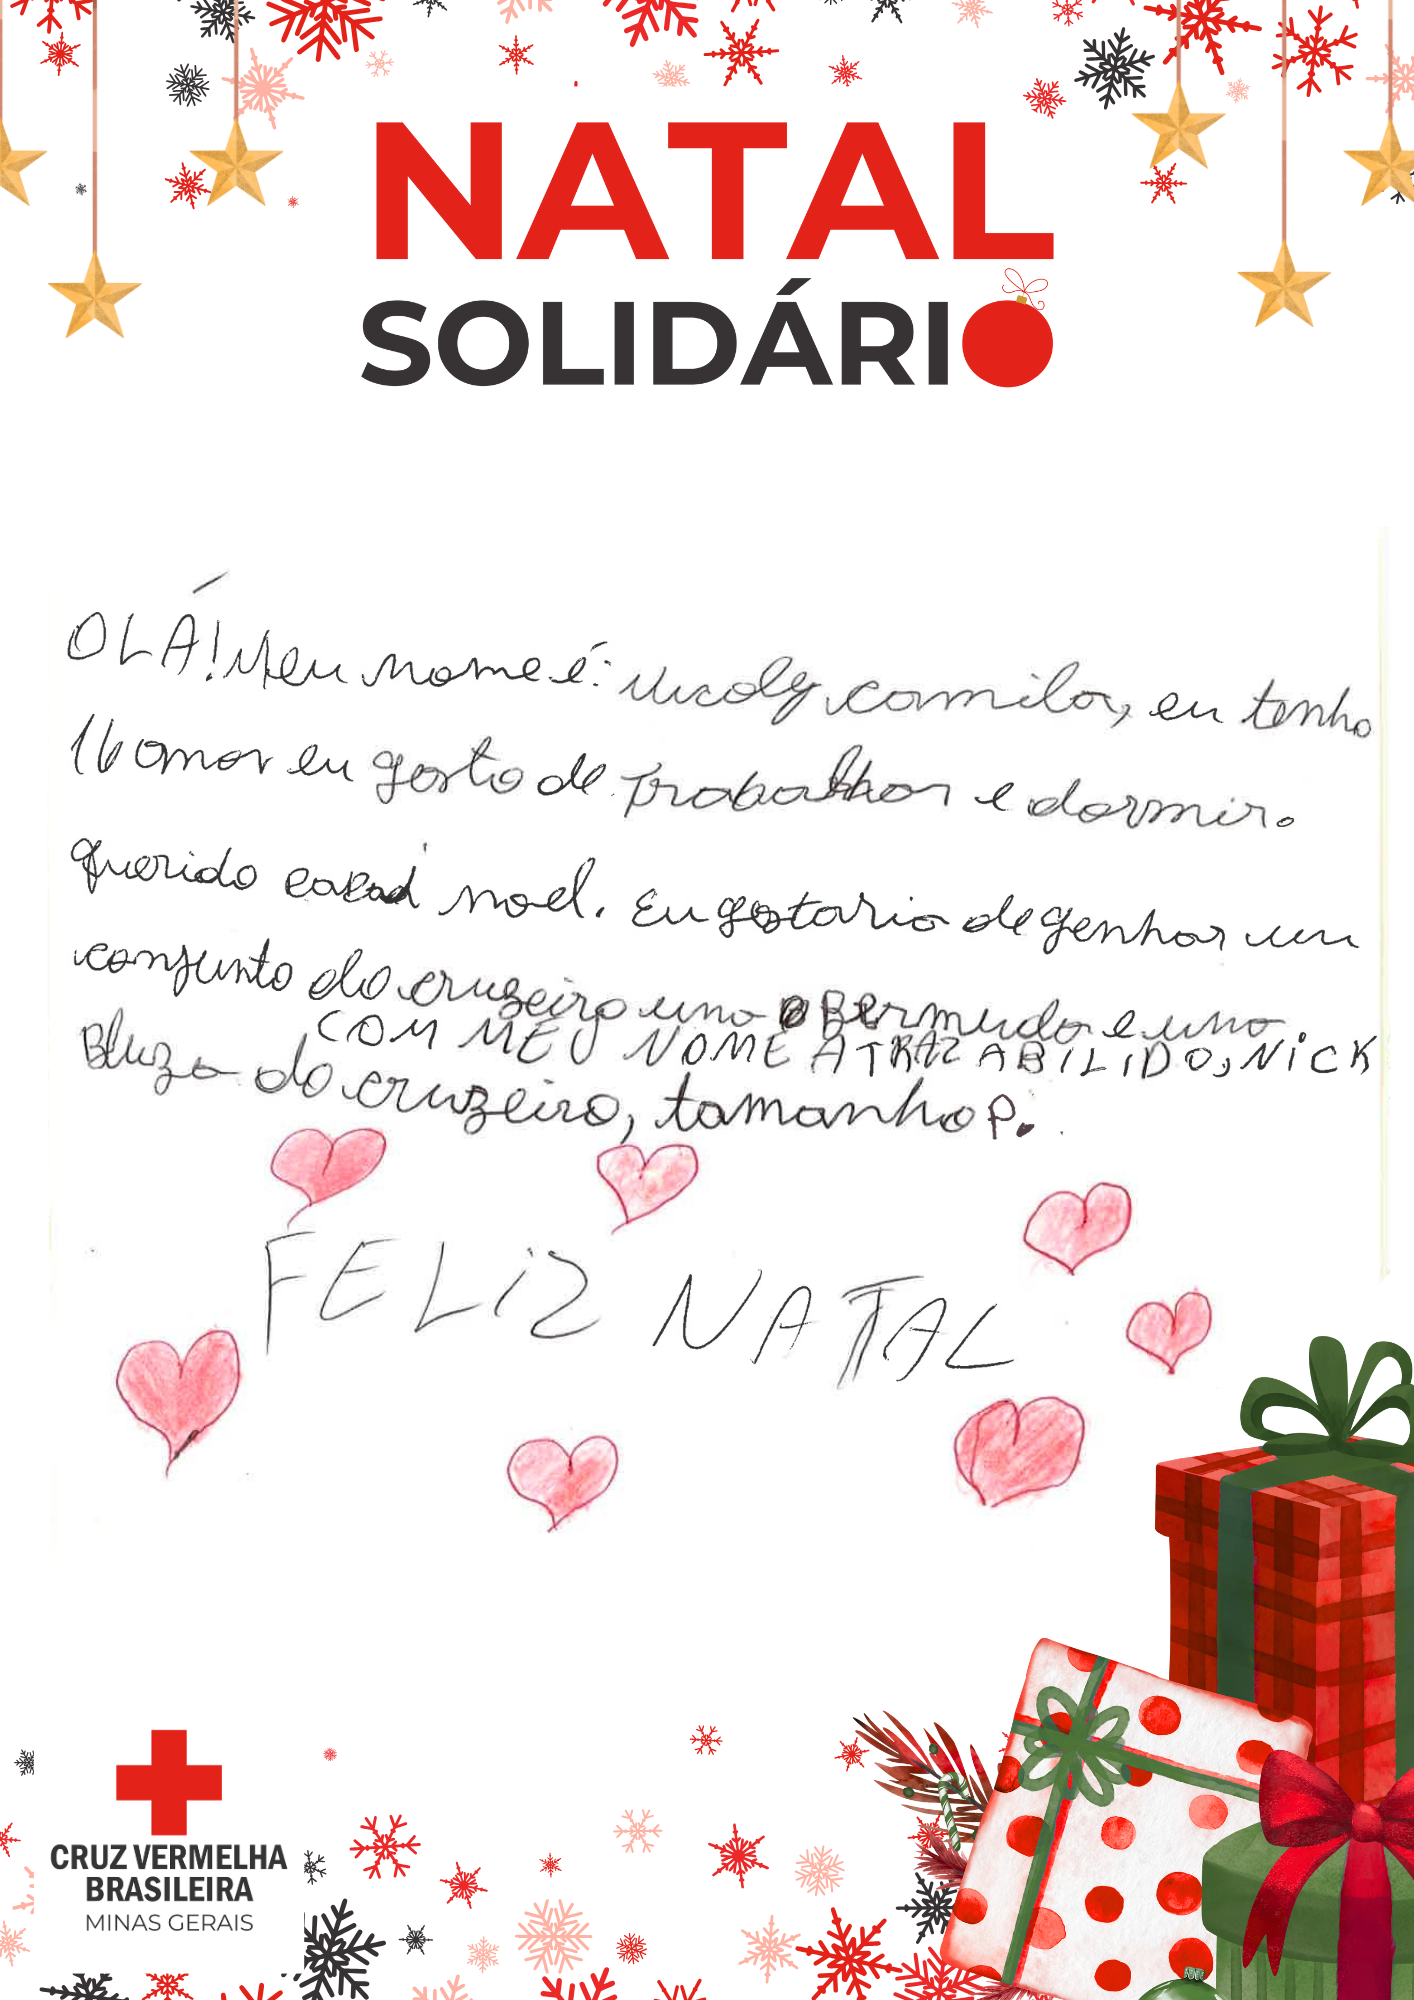 NATAL
SOLIDÁRIO
OLÁ! Meu nome é: Nicoly camila, eu tenho
16 anos eu gosto de Trabalhar e dormir.
querido papai noel. Eu gotaria de genhar um
conjunto do cruzeiro uma Bermuda e uma
COM MEU NOME ATRAZ ABILIDO, NiCK
Bluza do cruzeiro, tamanho P.
FELiZ NATAL
CRUZ VERMELHA
BRASILEIRA
MINAS GERAIS